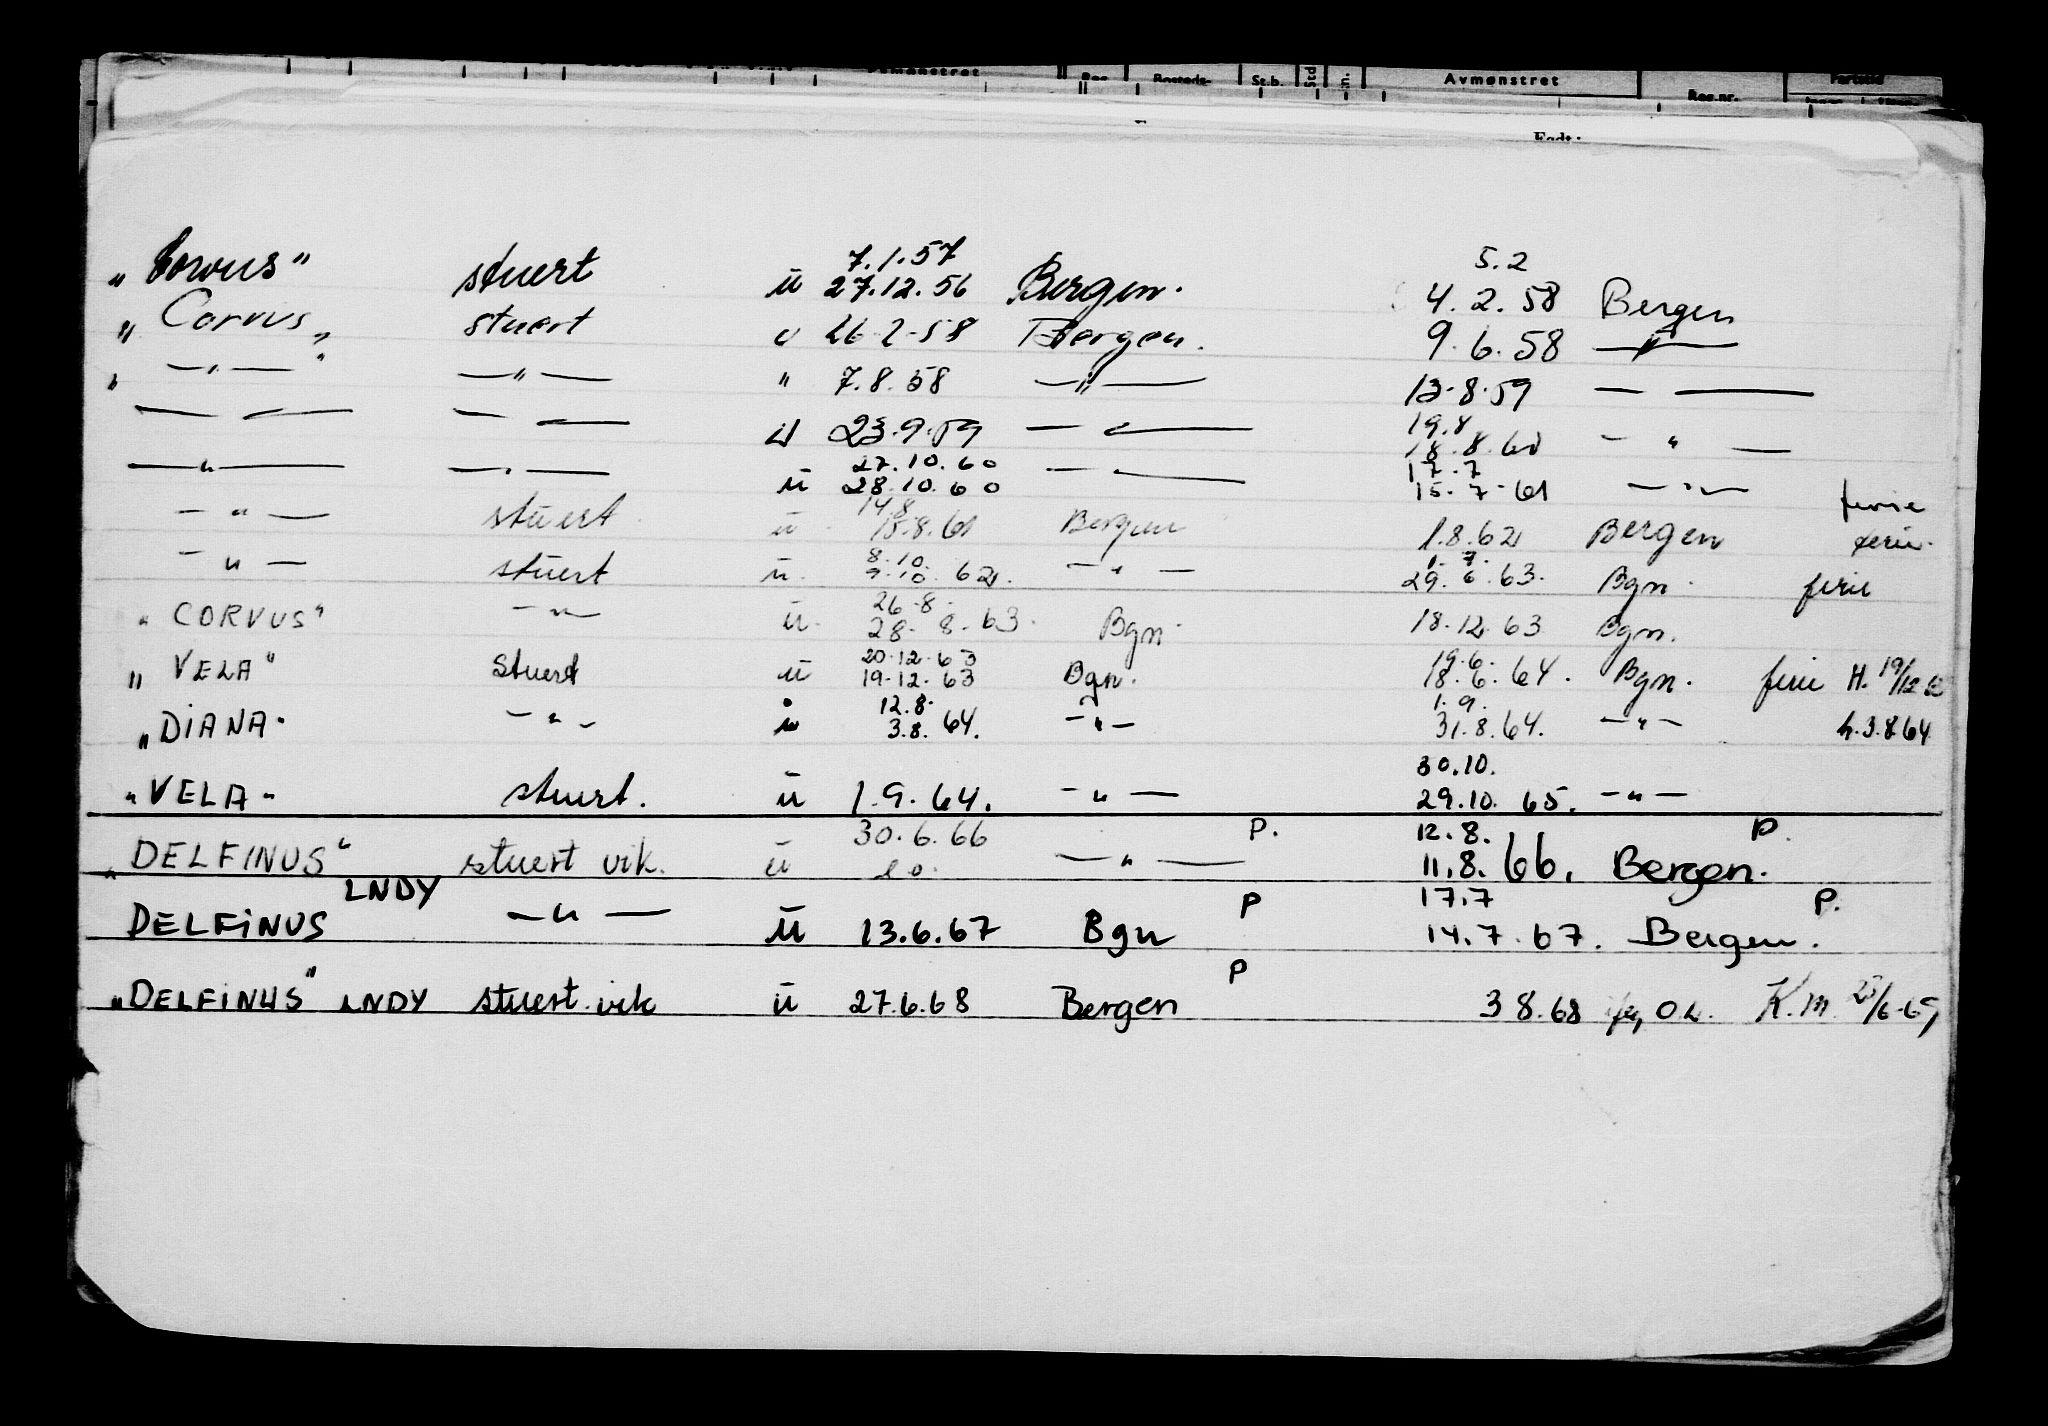 Avmønstret
"Corvus" stuert u 7.1.57 27.12.56 Bergen. 5.2 4.2.58 Bergen
"Corvus" stuert u 26.2.58 Bergen. 9.6.58 — " —
" — " — — " — " 7.8.58 — " — 13.8.59 — —
— — — — u 23.9.59 — — 19.8 18.8.60 — " —
— " — — " — u 27.10.60 28.10.60 — — 17.7 15.7.61 — " — ferie
— " — stuert u 14.8 15.8.61 Bergen 1.8.62 Bergen ferie.
— " — stuert u. 8.10. 9.10.62. — " — 1.7. 29.6.63. Bgn. ferie
"CORVUS" — " — u. 26.8. 28.8.63. Bgn. 18.12.63 Bgn.
"VELA" stuert u 20.12.63 19.12.63 Bgn. 19.6. 18.6.64. Bgn. ferie H. 19/12 63
"DIANA" — " — u 12.8. 3.8.64. — " — 1.9. 31.8.64. — " — h.3.8.64
"VELA" stuert. u 1.9.64. — " — 30.10. 29.10.65. — " —
"DELFINUS" stuert vik. u 30.6.66 — " — P. 12.8. 11.8.66. Bergen. P.
DELFINUS LNDY — " — u 13.6.67 Bgn P 17.7 14.7.67. Bergen. P.
"DELFINUS" LNDY stuert vik u 27.6.68 Bergen P 3 8.68 K.m.